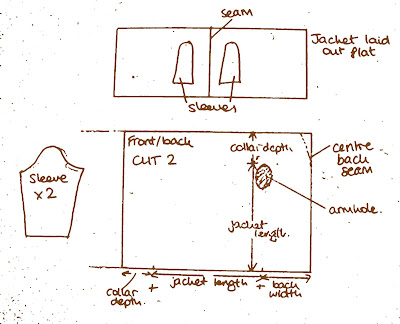 seam
Jacket laid
out flat
sleeves
Front/back
CUT 2
collar depth
centre
back
seam
Sleeve
x 2
armhole.
jacket
length.
collar
depth.
+
jacket length
+
back
width